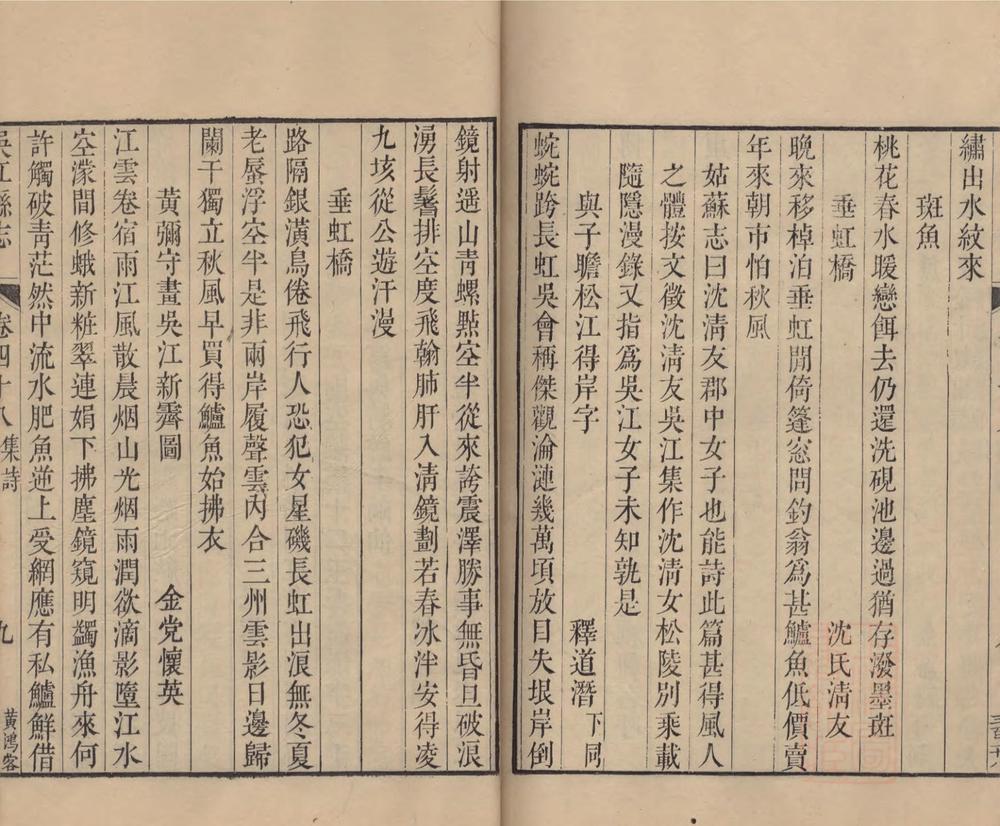 繡出水紋來
斑魚
桃花春水暖戀餌去仍還洗硯池邊過猶存潑墨斑
垂虹橋 沈氏清友
晚來移棹泊垂虹閒倚篷窓問釣翁爲甚鱸魚低價賣
年來朝市怕秋風
姑蘇志曰沈清友郡中女子也能詩此篇甚得風人
之體按文徵沈清友吳江集作沈清女松陵別乘載
隨隱漫錄又指爲吳江女子未知孰是
與子瞻松江得岸字 釋道潛下同
蜿蜿跨長虹吳會稱傑觀淪漣幾萬頃放目失垠岸倒
鏡射遥山青螺點空半從來誇震澤勝事無昏旦破浪
湧長鬐排空度飛翰肺肝入清鏡劃若春冰泮安得凌
九垓從公遊汗漫
垂虹橋
路隔銀潢鳥倦飛行人恐犯女星磯長虹出浪無冬夏
老蜃浮空半是非兩岸履聲雲內合三州雲影日邊歸
闌干獨立秋風早買得鱸魚始拂衣
黃彌守畫吳江新霽圖 金党懷英
江雲卷宿雨江風散晨烟山光烟雨潤欲滴影墮江水
空濛間修蛾新粧翠連娟下拂塵鏡窺明蠲漁舟來何
許觸破青茫然中流水肥魚逆上受網應有私鱸鮮借
吳江縣志 卷四十八集詩 九 黃鴻客